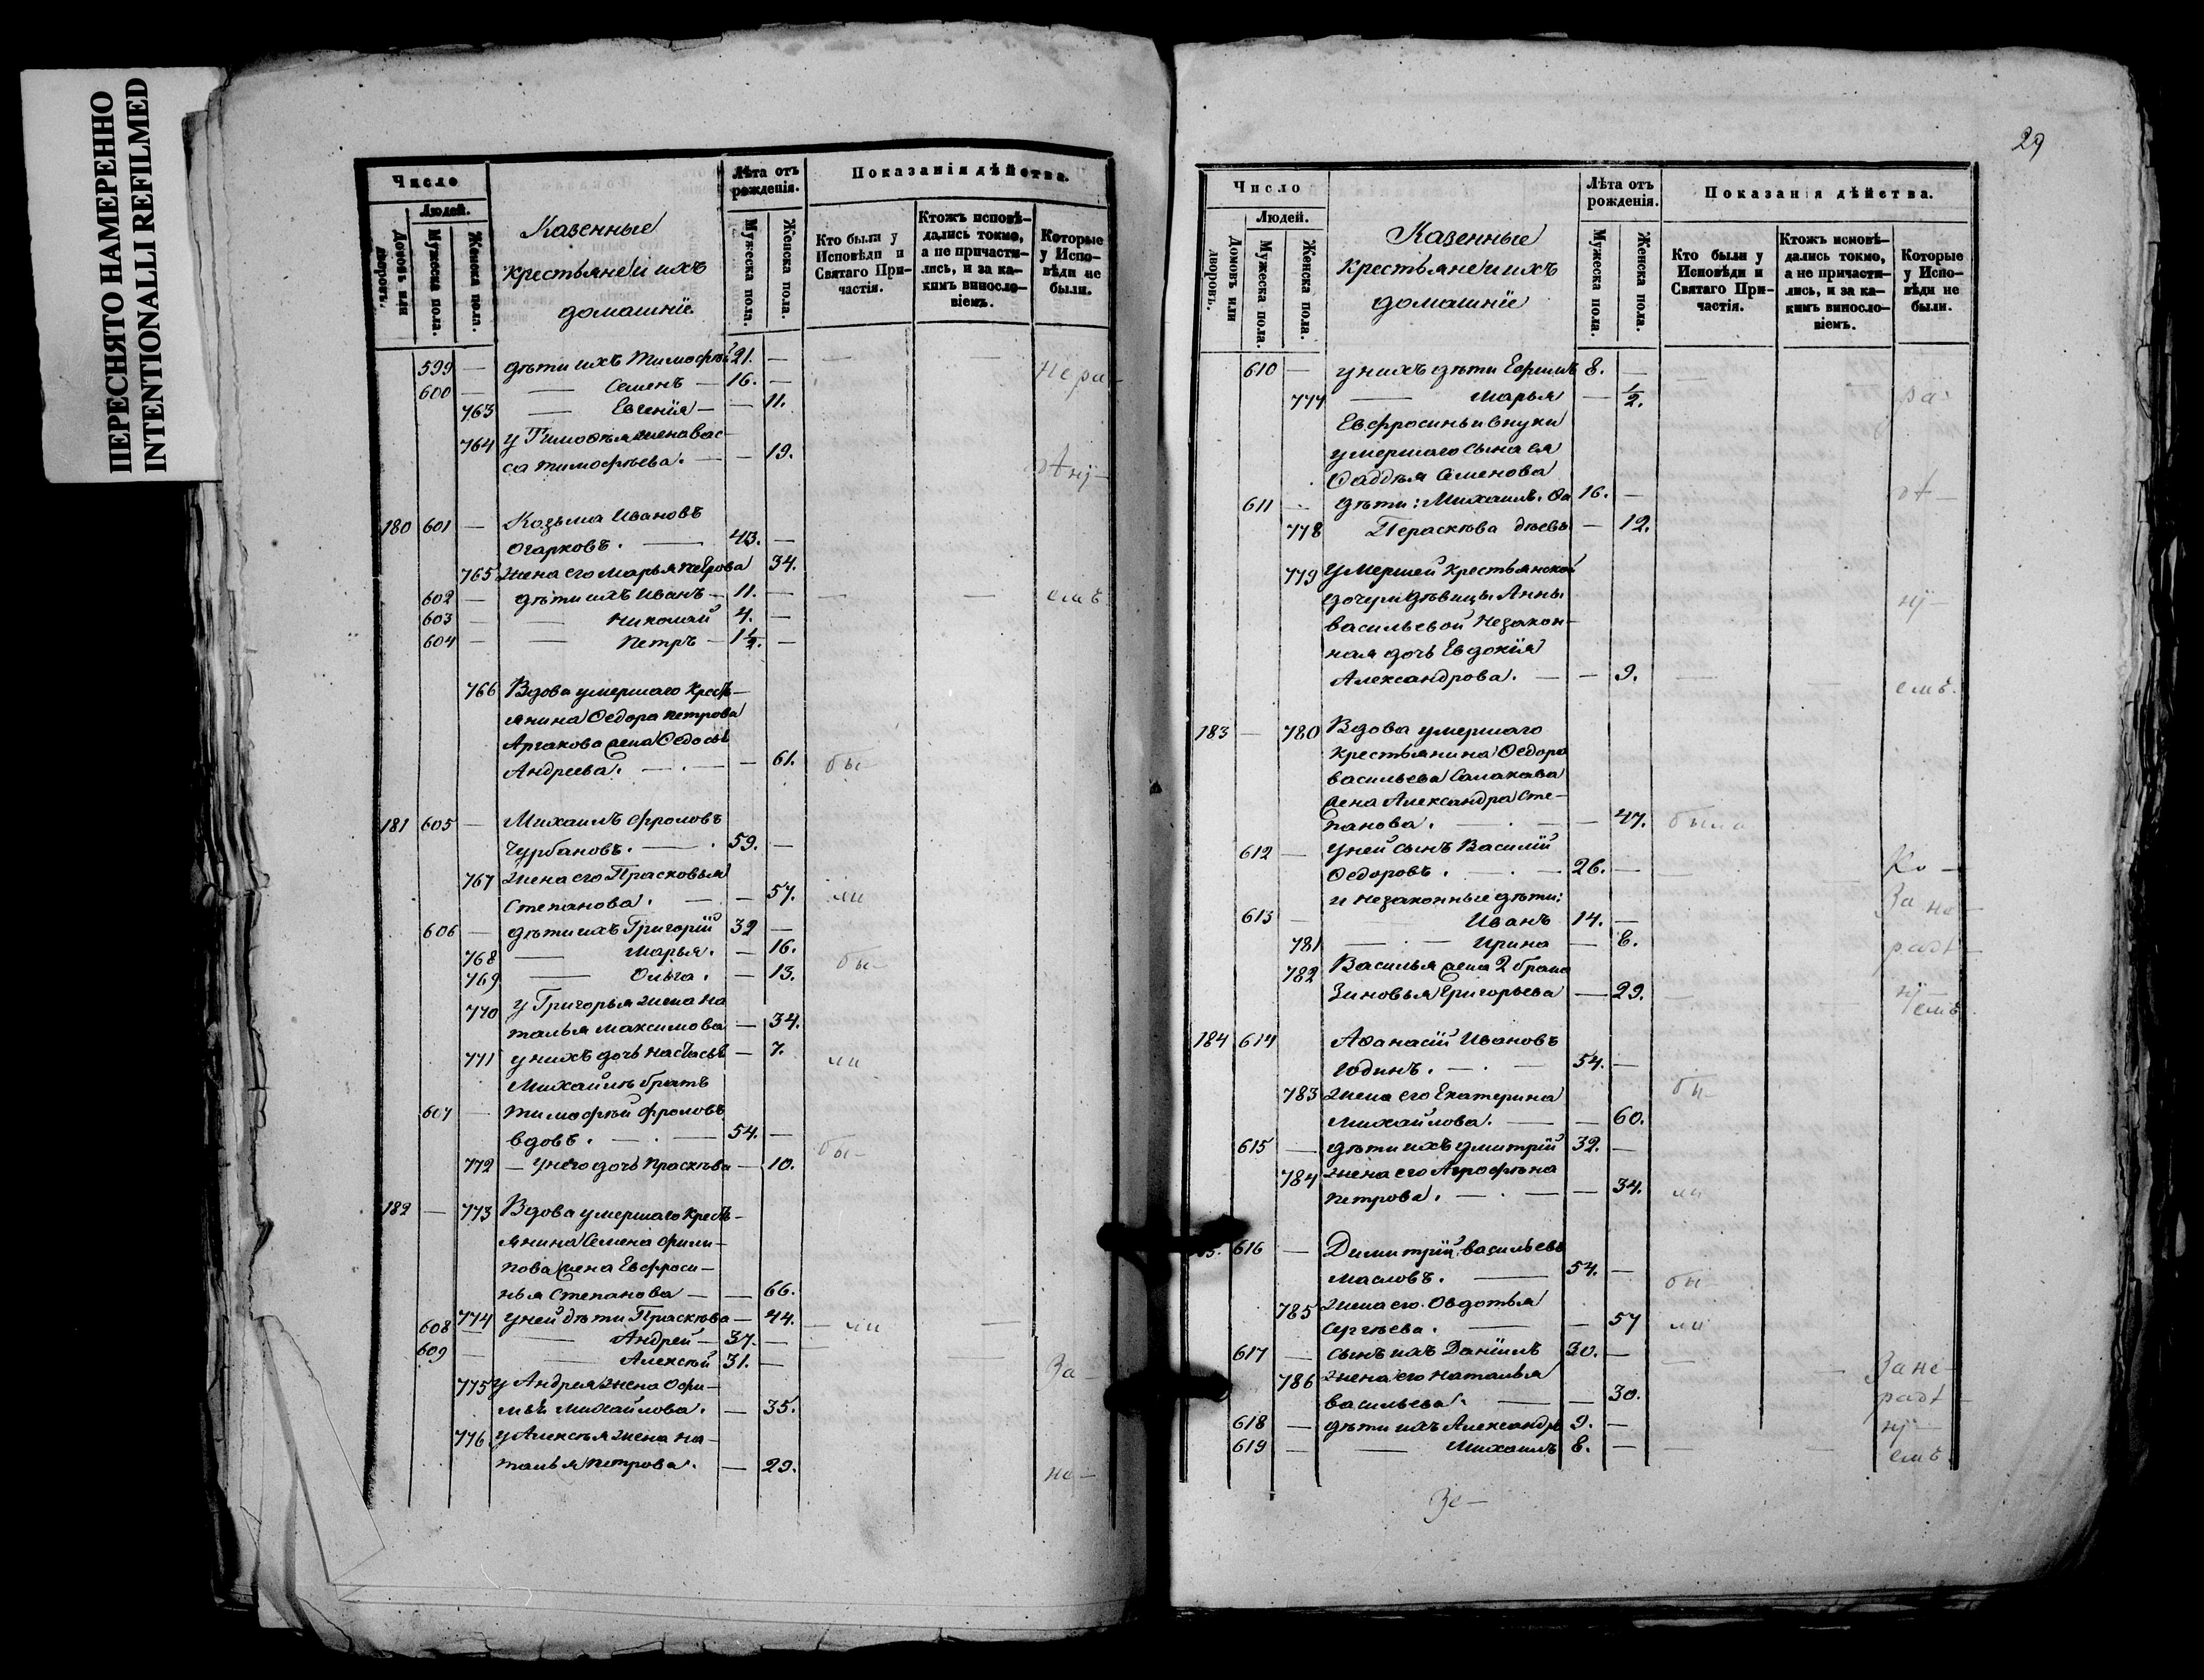 ПЕРЕСНЯТО НАМЕРЕННО
INTENTIONALLI REFILMED
Число
Людей.
Домовъ или дворовъ.
Мужеска пола.
Женска пола.
Казенные
крестьяне и ихъ
домашніе
Лѣта отъ рожденія.
Мужеска пола.
Женска пола.
Показанія дѣйства.
Кто были у Исповѣди и Святаго Причастія.
Ктожъ исповѣдались токмо, а не причастились, и за какимъ винословіемъ.
Которые у Исповѣди не были.
599 — дѣти ихъ Тимофѣй 21. —
600 — — Семенъ — 16. —
763 — Евгенія — — 11.
764 у Тимофея жена Вас-
са Тимофѣева. — — 19.
180 601 — Козьма Ивановъ
Огарковъ. — 43. —
765 жена его Марья Петрова 34.
602 — дѣти ихъ Иванъ — 11. — емъ
603 — — Николай 4. —
604 — — Петръ — 1 1/2. —
766 Вдова умершаго кресть-
янина Ѳедора Петрова
жена Ѳедосья
Андреева. — — 61. бы-
181 605 — Михаилъ Фроловъ
Чурбановъ. — 59. —
767 жена его Прасковья
Степанова. — — 57. ли
606 — дѣти ихъ Григорій 32 —
768 — Марья. — 16.
769 — Ольга. — 13. бы-
770 у Григорья жена На
талья Максимова — 34.
771 у нихъ дочь Настасья — 7. ли
Михаилъ братъ
607 — Тимофѣй Фроловъ
вдовъ. — 54. —
772 — у него дочь Праскѣва — 10. бы-
182 — 773 Вдова умершаго кресть-
янина Семена Фили-
пова жена Евфроси-
нья Степанова — — 66.
774 у ней дѣти Праскѣва — 44. — ли —
608 — — Андрей — 37. —
609 — — Алексѣй 31. — За-
775 у Андрея жена Офи-
мья Михайлова. — 35.
776 у Алексѣя жена На-
талья Петрова. — 29. не-
29
Число
Людей.
Домовъ или дворовъ.
Мужеска пола.
Женска пола.
Казенные
крестьяне и ихъ
домашніе
Лѣта отъ рожденія.
Мужеска пола.
Женска пола.
Показанія дѣйства.
Кто были у Исповѣди и Святаго Причастія.
Ктожъ исповѣдались токмо, а не причастились, и за какимъ винословіемъ.
Которые у Исповѣди не были.
610 — у нихъ дѣти Ефримъ 8. —
777 — Марья — 1/2.
Евфросиньи внуки
умершаго сына ея
Ѳаддѣя Семенова
611 — дѣти: Михаилъ. Ѳа 16. —
778 Праскѣва дѣевы — 12.
779 Умершей крестьянской
дочери дѣвицы Анны
Васильевой незакон-
ная дочь Евдокія
Александрова. — — 9. — емъ.
183 — 780 Вдова умершаго
крестьянина Ѳедора
Васильева
жена Александра Сте-
панова. — — 47. была
612 — У ней сынъ Василій
Ѳедоровъ. — 26. —
и незаконные дѣти:
613 — Иванъ 14. —
781 — Ирина — 8.
782 Василья жена 2 брака
Зиновья Григорьева — 29. емъ.
184 614 Аѳанасій Ивановъ
Годинъ. — 54. —
783 жена его Екатерина бы-
Михайлова. — — 60.
615 — дѣти ихъ Дмитрій 32. —
784 жена его Агрофѣна
Петрова. — — 34. ли
616 — Димитрій Васильевъ
Масловъ. — 54. — бы-
785 жена его Овдотья
Сергѣева. — — 57 ли
617 — сынъ ихъ Даніилъ 30. — За не-
786 жена его Наталья
Васильева. — — 30. рад-
618 — дѣти ихъ Александръ 9. —
619 — — Михаилъ 8. — — — емъ.